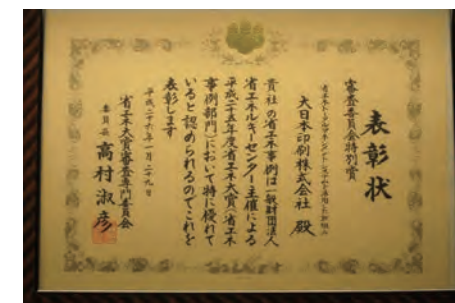 表彰状
審査委員会特別賞
大日本印刷株式会社 殿
貴社の省エネ事例は一般財団法人
省エネルギーセンター主催による
平成二十五年度省エネ大賞(省エネ
事例部門)において特に優れて
いると認められるのでこれを
表彰します
平成二十六年一月二十九日
省エネ大賞審査専門委員会
委員長 高村淑彦